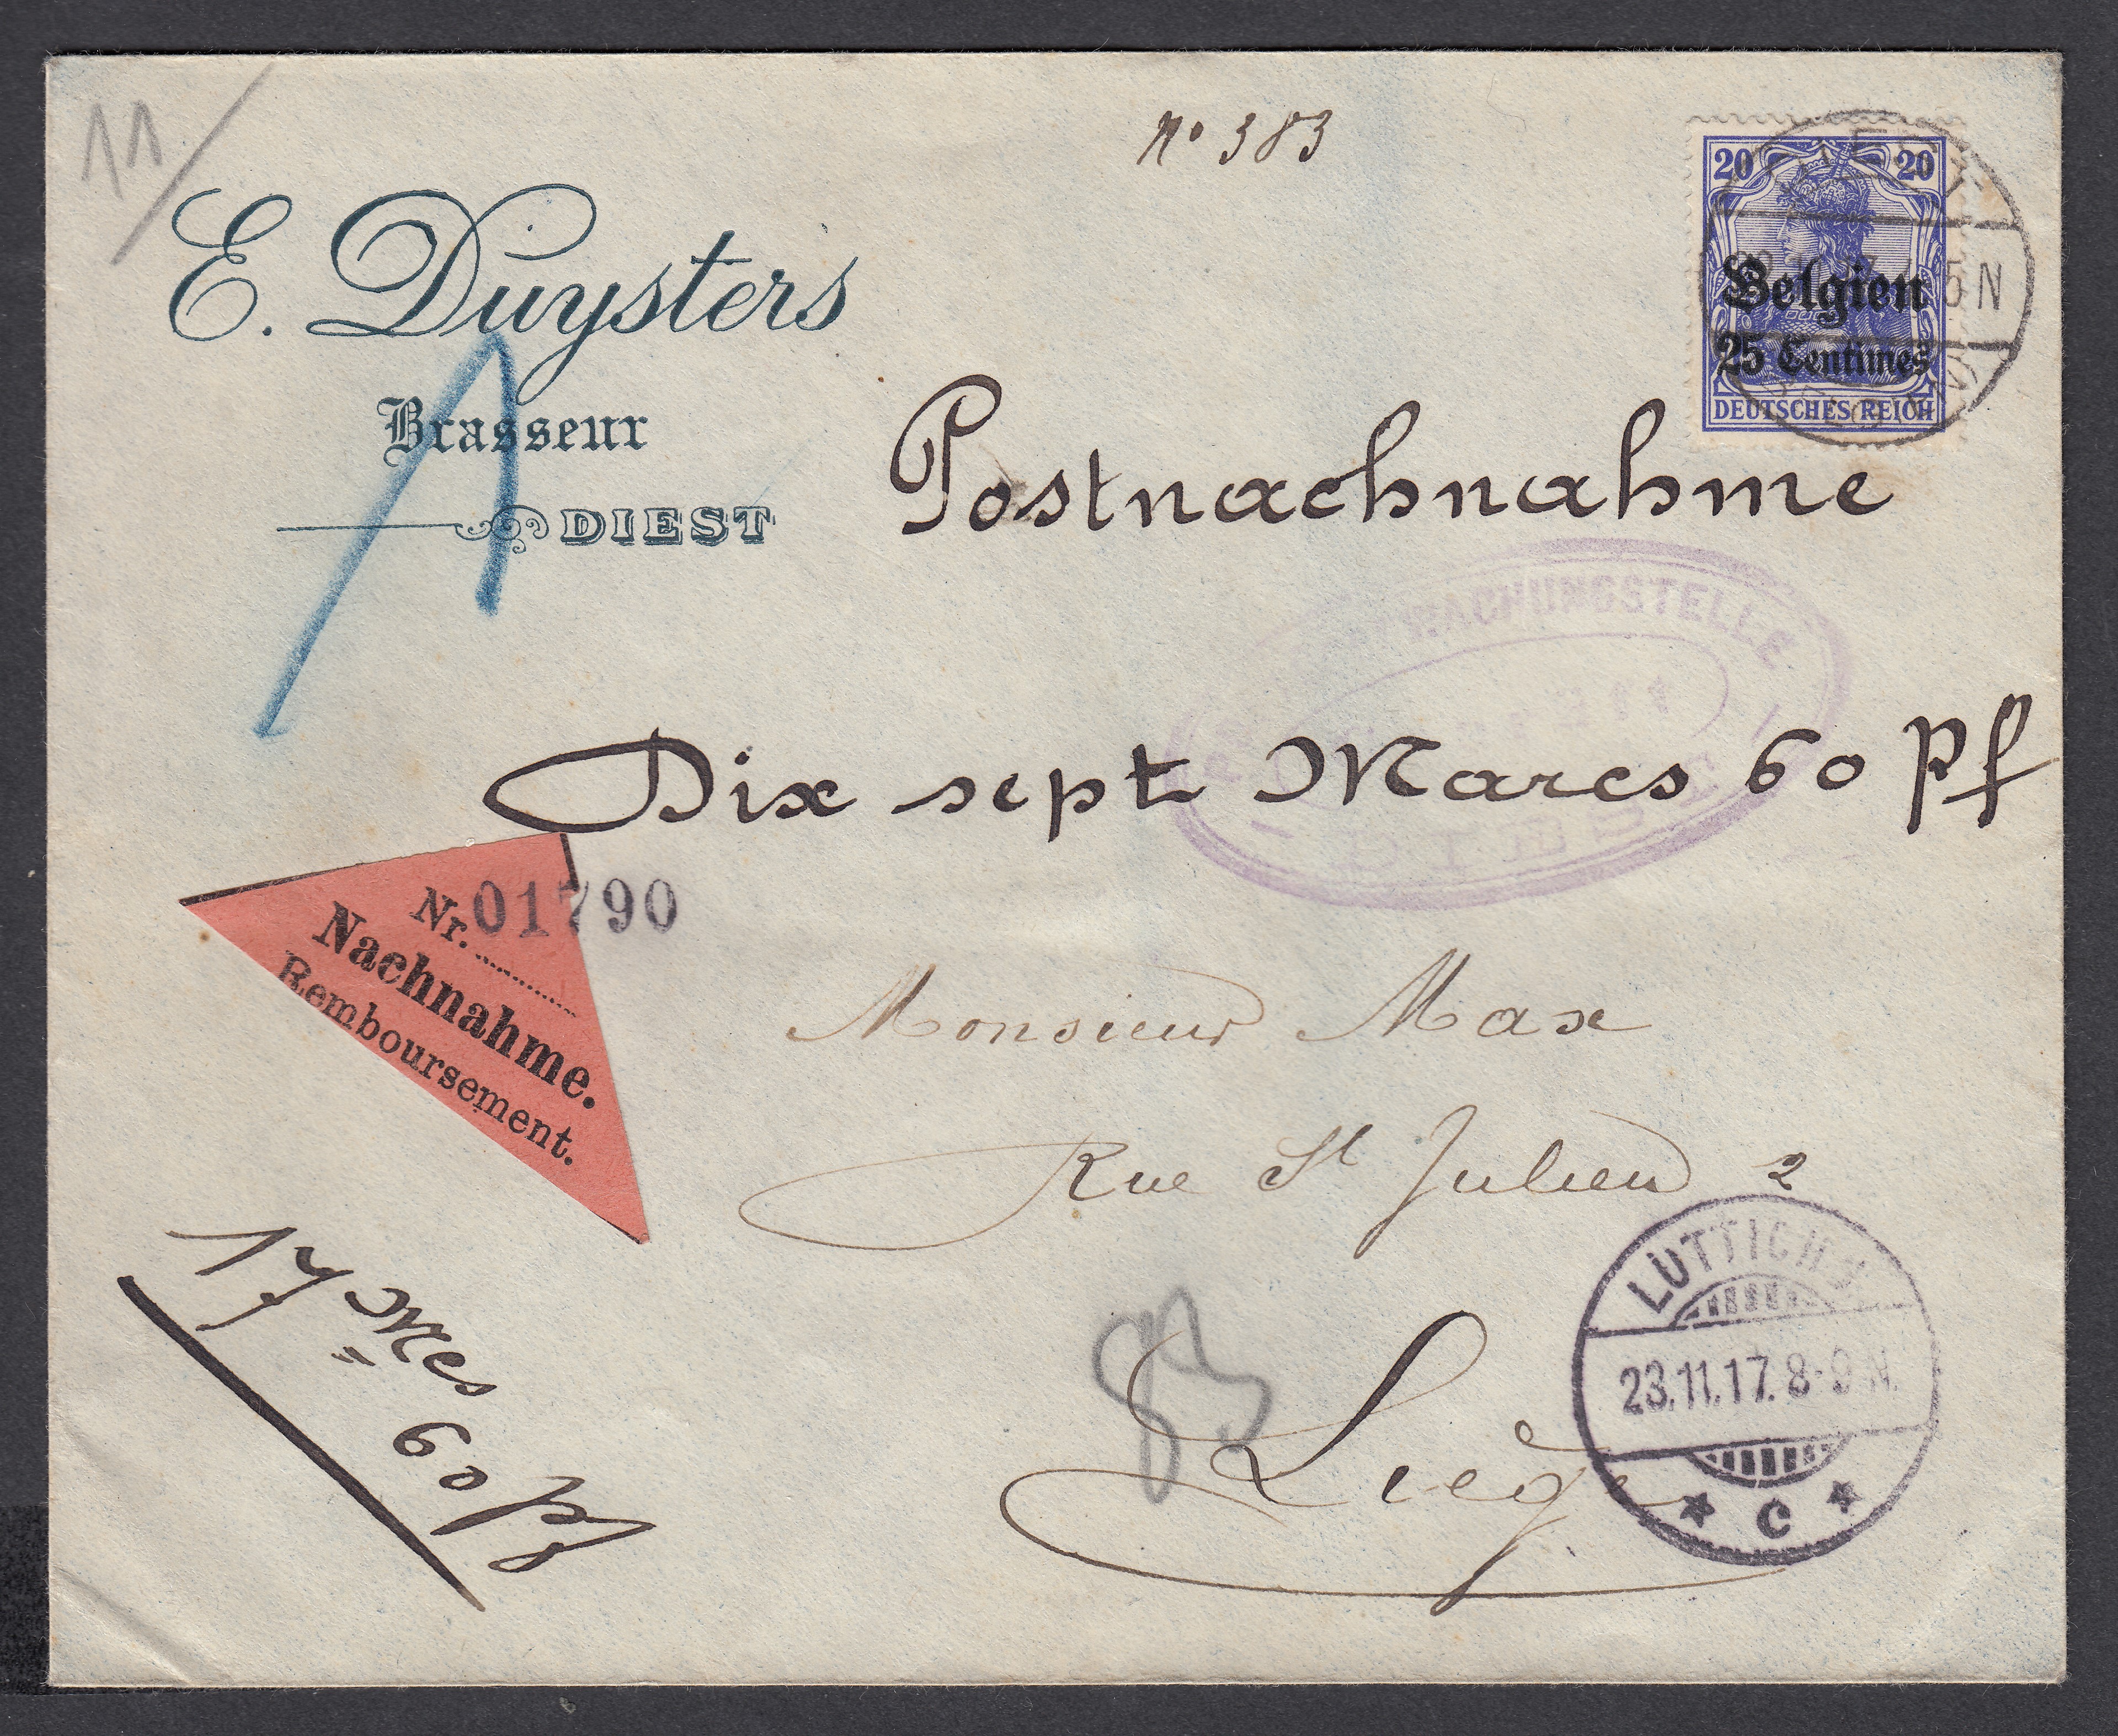 11
No 383
E. Duysters
Brasseur
DIEST
20 20
Belgien
25 Centimes
DEUTSCHES REICH
5 N
Postnachnahme
Dix sept Marcs 60 Pf
DIEST
Nr. 01790
Nachnahme.
Remboursement.
Monsieur Max
Rue St Julien 2
Liége
17 Mcs 60 Pf
LÜTTICH
23.11.17. 8-9 N.
* c *